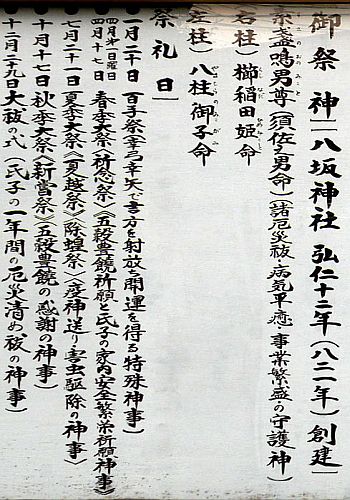 御祭神｜八坂神社 弘仁十二年(八二一年)創建｜
素盞鳴男尊(須佐之男命)(諸厄災祓・病気平癒・事業繁盛・の守護神)
右柱)櫛稲田姫命
左柱)八柱御子命
祭礼日｜
一月二十日 百手祭(幸弓幸矢で吉方を射放ち開運を得る特殊神事)
四月第一日曜日
四月十七日 春季大祭(祈念祭)《五穀豊饒祈願と氏子の家内安全繁栄祈願神事》
七月二十一日 夏季大祭《夏越祭》《除蝗祭》《疫神送り・害虫駆除の神事》
十月十七日 秋季大祭《新嘗祭》《五穀豊饒の感謝の神事》
十二月二十九日 大祓の式(氏子の一年間の厄災清め祓の神事)